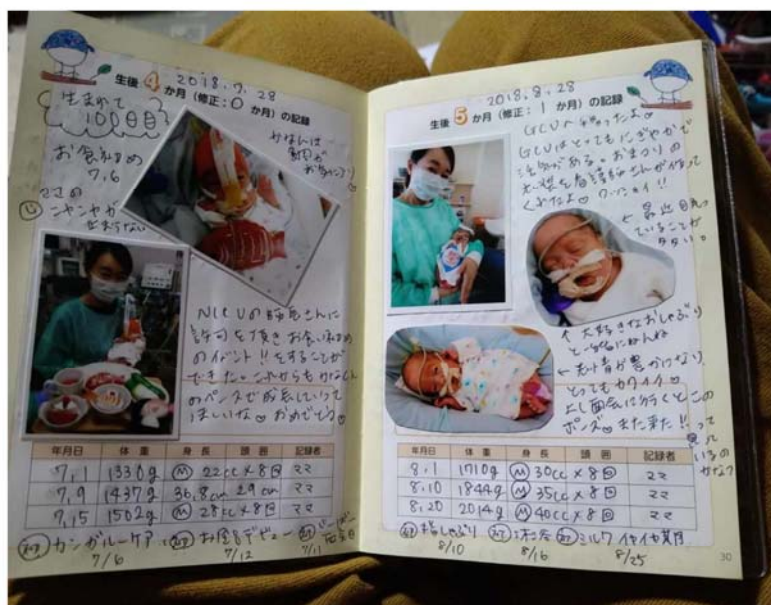 2018.7.28
生後4か月(修正:0か月)の記録
生まれて
100日目
お食い初め
7.6
ママの
ニヤニヤが
止まらない
かなんは
NICUの師長さんに
許可を頂きお食い初め
のイベント!!をすることが
できた。これからもかなくん
のペースで成長していって
ほしいな♡おめでとう♡
年月日 体重 身長 頭囲 記録者
7,1 1330g Ⓜ 22cc×8回 ママ
7,9 1437g 36.8cm 29cm ママ
7,15 1502g Ⓜ 28cc×8回 ママ
カンガルーケア
7/6
お風呂デビュー
7/12
7/11
2018.8.28
生後5か月(修正:1か月)の記録
GCUへ
GCUはとってもにぎやかで
活気がある。おまつりの
衣装を看護師さんが作って
くれたよ♡
← 最近目立っ
ていることが
多い。
↑ 大好きなおしゃぶり
と一緒にねんね
とってもカワイイ♡
よし面会に行くとこの
ポーズ♡また来た!!って
思って
いるの
かな?
年月日 体重 身長 頭囲 記録者
8,1 1710g Ⓜ 30cc×8回 ママ
8,10 1844g Ⓜ 35cc×8回 ママ
8,20 2014g Ⓜ 40cc×8回 ママ
指しゃぶり
8/10
沐浴
8/16
ミルクイヤイヤ期
8/25
30